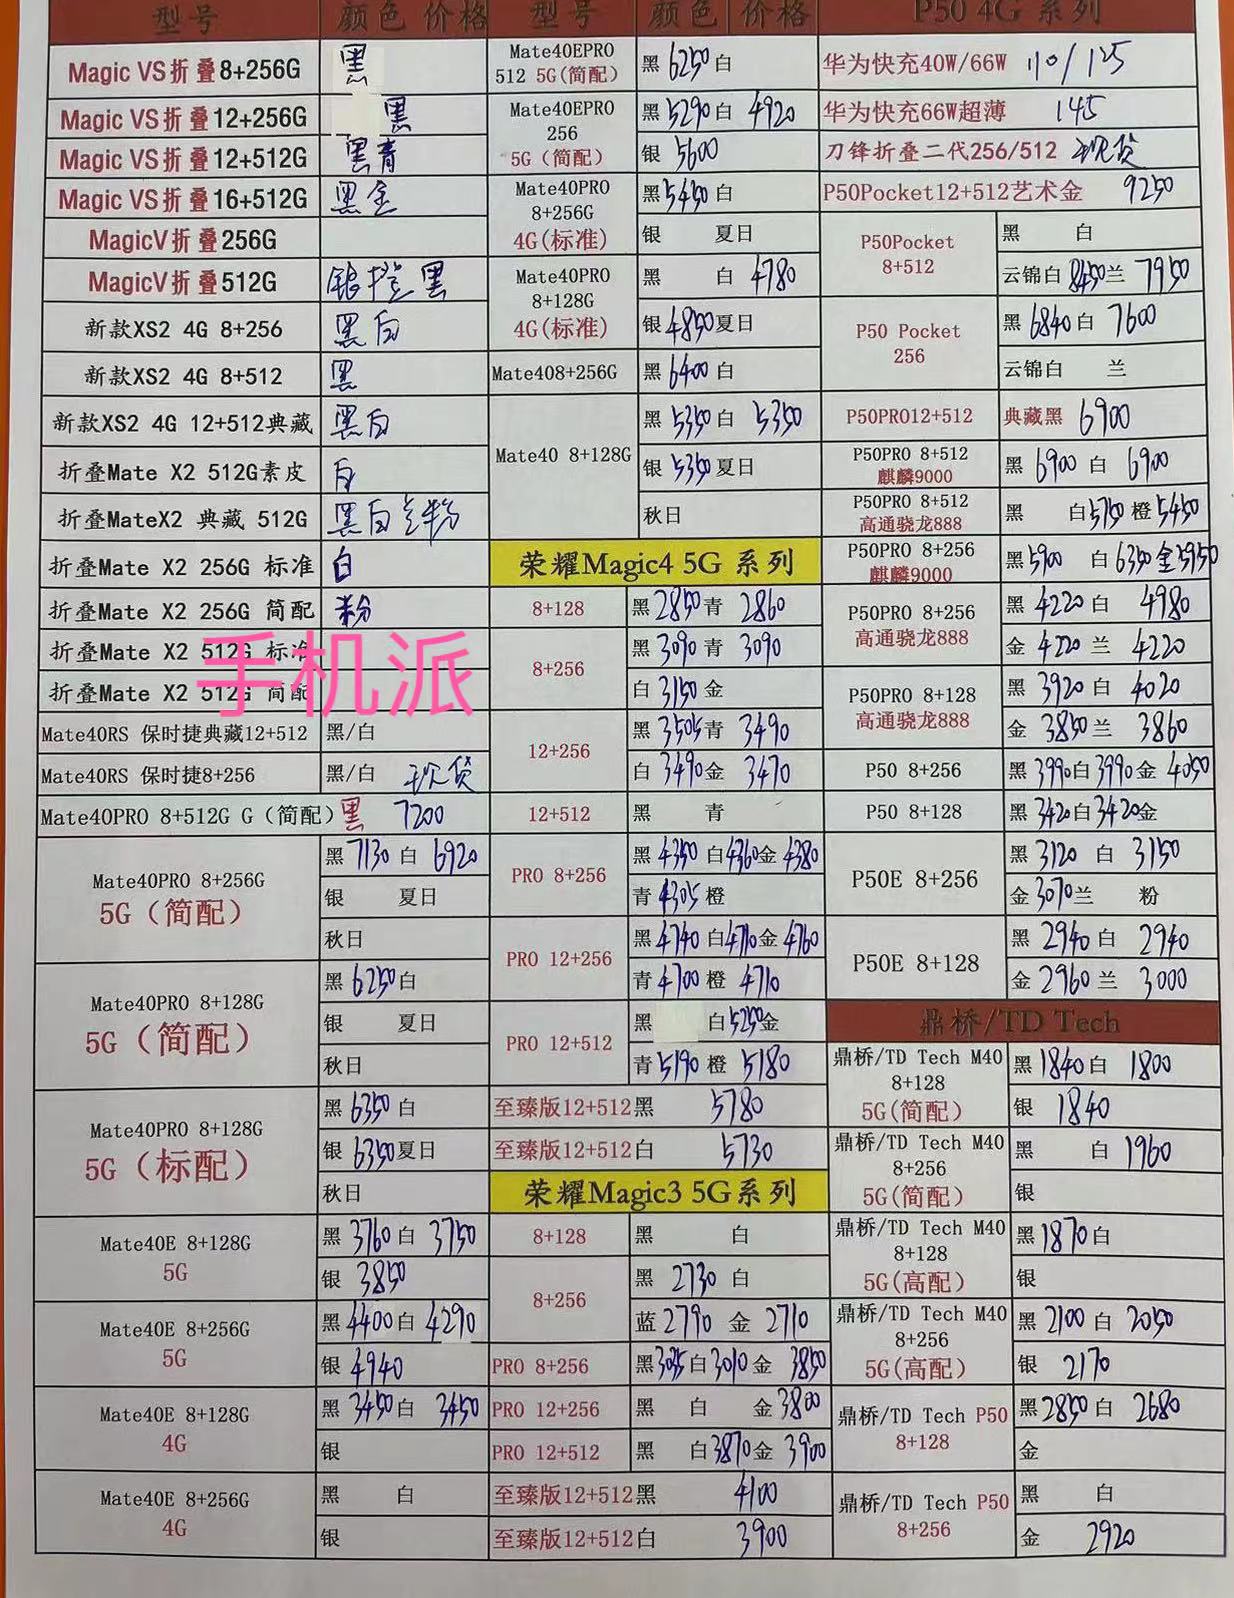 型号 颜色 价格
Magic VS折叠8+256G 黑
Magic VS折叠12+256G 黑
Magic VS折叠12+512G 黑青
Magic VS折叠16+512G 黑金
MagicV折叠256G
MagicV折叠512G 银橙黑
新款XS2 4G 8+256 黑白
新款XS2 4G 8+512 黑
新款XS2 4G 12+512典藏 黑白
折叠Mate X2 512G素皮 白
折叠MateX2 典藏 512G 黑白 粉
折叠Mate X2 256G 标准 白
折叠Mate X2 256G 简配 粉
折叠Mate X2 512G 标准
折叠Mate X2 512G 简配
手机派
Mate40RS 保时捷典藏12+512 黑/白
Mate40RS 保时捷8+256 黑/白 现货
Mate40PRO 8+512G G（简配） 黑 7200
Mate40PRO 8+256G
5G（简配）
黑 7130 白 6920
银 夏日
秋日
Mate40PRO 8+128G
5G（简配）
黑 6250 白
银 夏日
秋日
Mate40PRO 8+128G
5G（标配）
黑 6350 白
银 6350 夏日
秋日
Mate40E 8+128G
5G
黑 3760 白 3750
银 3850
Mate40E 8+256G
5G
黑 4400 白 4290
银 4940
Mate40E 8+128G
4G
黑 3450 白 3450
银
Mate40E 8+256G
4G
黑 白
银
型号 颜色 价格
Mate40EPRO
512 5G(简配)
黑 6250 白
Mate40EPRO
256
5G（简配）
黑 5290 白 4920
银 5600
Mate40PRO
8+256G
4G(标准)
黑 5450 白
银 夏日
Mate40PRO
8+128G
4G(标准)
黑 白 4780
银 4850 夏日
Mate408+256G 黑 6400 白
Mate40 8+128G
黑 5350 白 5350
银 5350 夏日
秋日
荣耀Magic4 5G 系列
8+128 黑 2850 青 2860
8+256
黑 3090 青 3090
白 3150 金
12+256
黑 3505 青 3490
白 3490 金 3470
12+512 黑 青
PRO 8+256
黑 4350 白 4360 金 4380
青 4305 橙
PRO 12+256
黑 4740 白 4710 金 4760
青 4700 橙 4710
PRO 12+512
黑 白 5250 金
青 5190 橙 5180
至臻版12+512黑 5780
至臻版12+512白 5730
荣耀Magic3 5G系列
8+128 黑 白
8+256
黑 2730 白
蓝 2790 金 2710
PRO 8+256 黑 3035 白 3010 金 3850
PRO 12+256 黑 白 金 3800
PRO 12+512 黑 白 3870 金 3900
至臻版12+512黑 4100
至臻版12+512白 3900
P50 4G 系列
华为快充40W/66W 110/125
华为快充66W超薄 145
刀锋折叠二代256/512 现货
P50Pocket12+512艺术金 9250
P50Pocket
8+512
黑 白
云锦白 8450 兰 7950
P50 Pocket
256
黑 6840 白 7600
云锦白 兰
P50PRO12+512 典藏黑 6900
P50PRO 8+512
麒麟9000
黑 6900 白 6900
P50PRO 8+512
高通骁龙888
黑 白 5750 橙 5450
P50PRO 8+256
麒麟9000
黑 5900 白 6350 金 5950
P50PRO 8+256
高通骁龙888
黑 4220 白 4980
金 4220 兰 4220
P50PRO 8+128
高通骁龙888
黑 3920 白 4020
金 3850 兰 3860
P50 8+256 黑 3990 白 3990 金 4050
P50 8+128 黑 3420 白 3420 金
P50E 8+256
黑 3120 白 3150
金 3070 兰 粉
P50E 8+128
黑 2940 白 2940
金 2960 兰 3000
鼎桥/TD Tech
鼎桥/TD Tech M40
8+128
5G(简配)
黑 1840 白 1800
银 1840
鼎桥/TD Tech M40
8+256
5G(简配)
黑 白 1960
银
鼎桥/TD Tech M40
8+128
5G(高配)
黑 1870 白
银
鼎桥/TD Tech M40
8+256
5G(高配)
黑 2100 白 2050
银 2170
鼎桥/TD Tech P50
8+128
黑 2850 白 2680
金
鼎桥/TD Tech P50
8+256
黑 白
金 2920